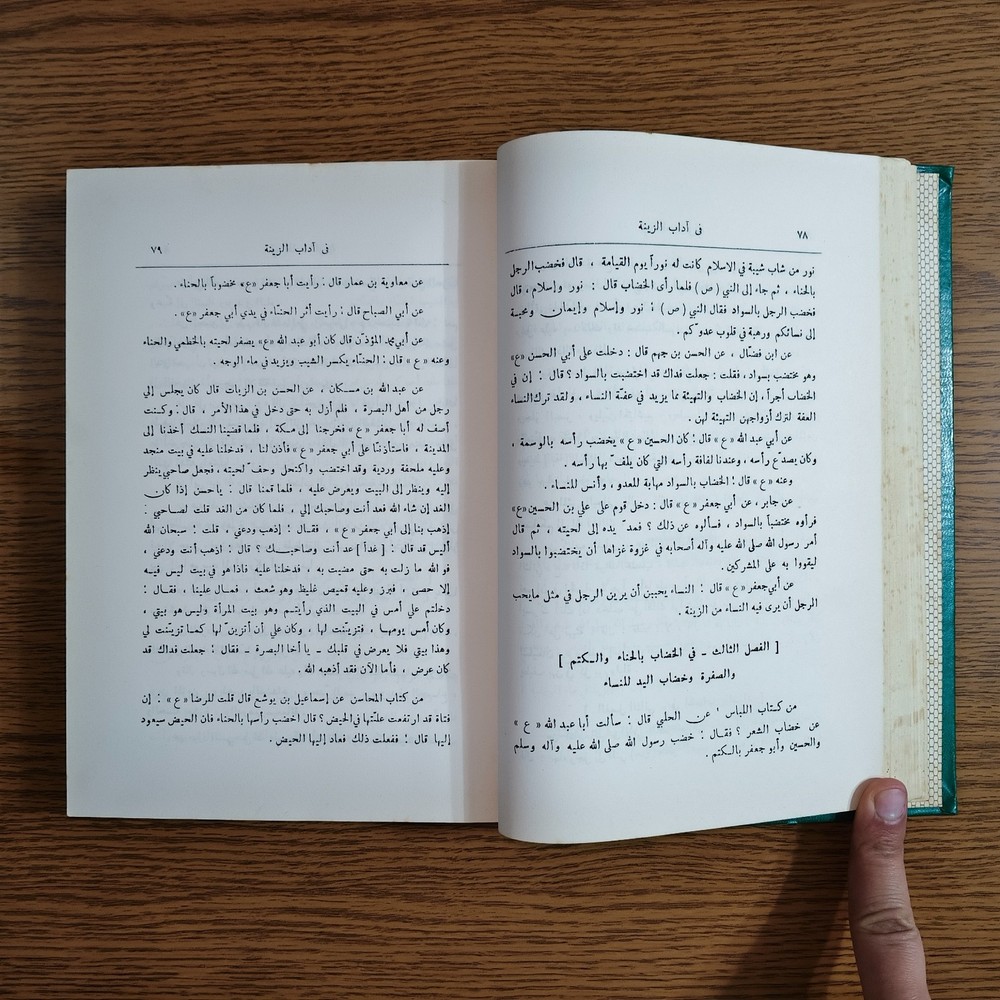 ٧٨
فى آداب الزينة
نور من شاب شيبة في الاسلام كانت له نوراً يوم القيامة ، قال فخضب الرجل
بالحناء ، ثم جاء إلى النبي (ص) فلما رأى الخضاب قال : نور وإسلام ، قال
فخضب الرجل بالسواد فقال النبي (ص) : نور وإسلام وإيمان ومحبة
إلى نسائكم ورهبة في قلوب عدوّكم .
عن ابن فضّال ، عن الحسن بن جهم قال : دخلت على أبي الحسن «ع»
وهو مختضب بسواد ، فقلت : جعلت فداك قد اختضبت بالسواد ؟ قال : إن في
الخضاب أجراً ، إن الخضاب والتهيئة مما يزيد في عفّة النساء ، ولقد ترك النساء
العفة لترك أزواجهن التهيئة لهن .
عن أبي عبد الله «ع» قال : كان الحسين «ع» يخضب رأسه بالوسمة ،
وكان يصدّع رأسه ، وعندنا لفافة رأسه التي كان يلفّ بها رأسه .
وعنه «ع» قال : الخضاب بالسواد مهابة للعدو ، وأنس للنساء .
عن جابر ، عن أبي جعفر «ع» قال : دخل قوم على علي بن الحسين «ع»
فرأوه مختضباً بالسواد ، فسألوه عن ذلك ؟ فمدّ يده إلى لحيته ، ثم قال
أمر رسول الله صلى الله عليه وآله أصحابه في غزوة غزاها أن يختضبوا بالسواد
ليقووا به على المشركين .
عن أبي جعفر «ع» قال : النساء يحببن أن يرين الرجل في مثل مايحب
الرجل أن يرى فيه النساء من الزينة .
[ الفصل الثالث ـ في الخضاب بالحناء والكتم ]
والصفرة وخضاب اليد للنساء
من كتاب اللباس ' عن الحلبي قال : سألت أبا عبد الله «ع»
عن خضاب الشعر ؟ فقال : خضب رسول الله صلى الله عليه وآله وسلم
والحسين وأبو جعفر بالكتم .
فى آداب الزينة
٧٩
عن معاوية بن عمار قال : رأيت أبا جعفر «ع» مخضوباً بالحناء .
عن أبي الصباح قال : رأيت أثر الحنّاء في يدي أبي جعفر «ع» .
عن أبي محمد المؤذّن قال كان أبو عبد الله «ع» يصفر لحيته بالخطمي والحناء
وعنه «ع» قال : الحنّاء يكسر الشيب ويزيد في ماء الوجه .
عن عبد الله بن مسكان ، عن الحسن بن الزيات قال كان يجلس إلي
رجل من أهل البصرة ، فلم أزل به حتى دخل في هذا الأمر ، قال : وكنت
أصف له أبا جعفر «ع» فخرجنا إلى مكة ، فلما قضينا النسك أخذنا إلى
المدينة ، فاستأذنّا على أبي جعفر «ع» فأذن لنا ، فدخلنا عليه في بيت منجد
وعليه ملحفة وردية وقد اختضب واكتحل وحفّ لحيته ، فجعل صاحبي ينظر
إليه وينظر إلى البيت ويعرض عليه ، فلما قمنا قال : ياحسن إذا كان
الغد إن شاء الله فعد أنت وصاحبك إلي ، فلما كان من الغد قلت لصاحبي :
إذهب بنا إلى أبي جعفر «ع» ، فقال : إذهب ودعني ، قلت : سبحان الله
أليس قد قال : [ غداً ] عد أنت وصاحبك ؟ قال : اذهب أنت ودعني ،
فو الله ما زلت به حتى مضيت به ، فدخلنا عليه فاذا هو في بيت ليس فيه
إلا حصى ، فبرز وعليه قميص غليظ وهو شعث ، فمال علينا ، فقال :
دخلتم علي أمس في البيت الذي رأيتم وهو بيت المرأة وليس هو بيتي ،
وكان أمس يومها ، فتزينّت لها ، وكان علي أن أتزينّ لها كما تزينّت لي
وهذا بيتي فلا يعرض في قلبك ـ يا أخا البصرة ـ فقال : جعلت فداك قد
كان عرض ، فأما الآن فقد أذهبه الله .
من كتاب المحاسن عن إسماعيل بن يوشع قال قلت للرضا «ع» : إن
فتاة قد ارتفعت علّتها في الحيض ؟ قال اخضب رأسها بالحناء فان الحيض سيعود
إليها قال : ففعلت ذلك فعاد إليها الحيض .